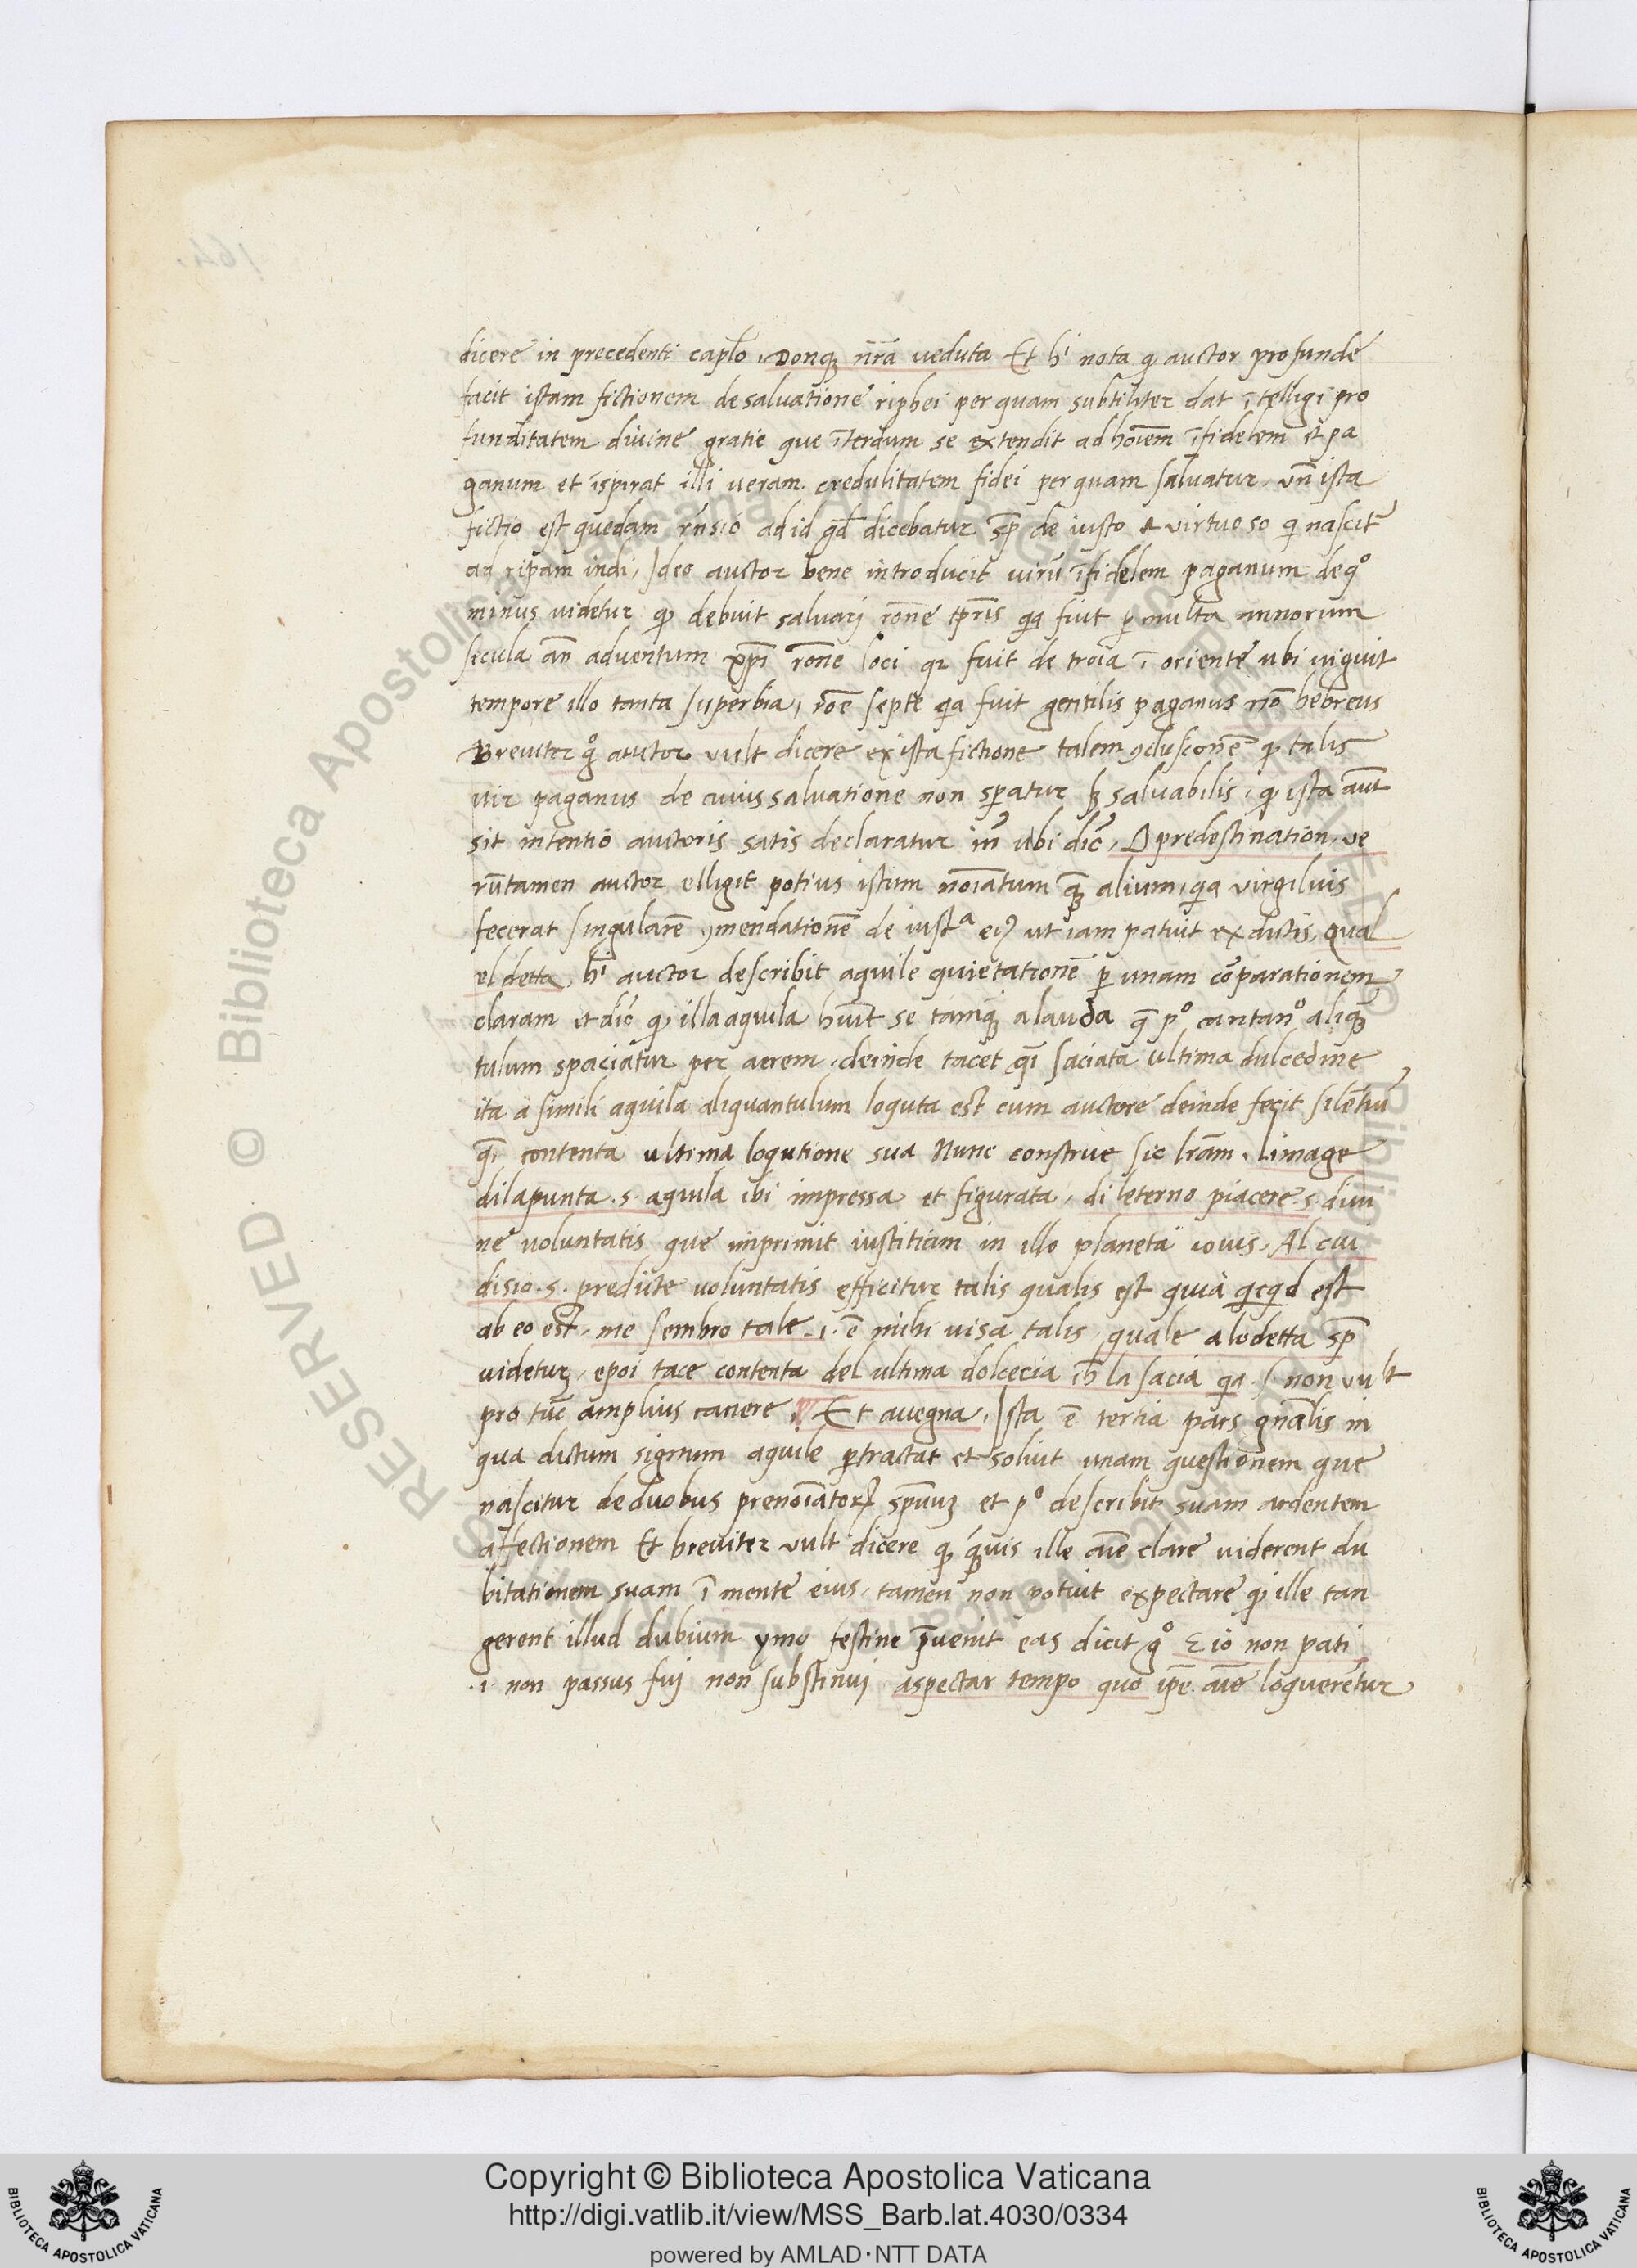 dicere in precedenti capl̃o. Donq̃ nr̃a veduta Et hⁱ nota ꝙ auctor profunde
facit istam fictionem de salvatione riphei per quam subtiliter dat ĩtelligi pro
funditatem divine gratie que ĩterdum se extendit ad hoĩem ĩfidelem et pa
ganum et ĩspirat illi veram credulitatem fidei per quam salvatur. Vñ ista
fictio est quedam rñsio ad id qd̃ dicebatur sp̃ de iusto et virtuoso qi nascit̃
ad ripam indi, Ideo auctor bene introducit virũ ĩfidelem paganum de qº
minus videtur ꝙ debuit salvari rõne tp̃ris qa fuit ꝑ multa annorum
secula añ adventum xp̃i rõne loci qa fuit de troia ĩ oriente ubi viguit
tempore illo tanta superbia, rõe septe qa fuit gentilis paganus nõ hebreus
Breviter gº auctor vult dicere ex ista fictione talem ꝯclusionẽ ꝙ talis
vir paganus de cuius salvatione non sp̃atur ẽ salvabilis, ꝙ ista aut̃
sit intentio auctoris satis declaratur in᷑ ubi dic̃. O predestination. ve
rũtamen auctor elligit potius istum noĩatum q̃ alium, qa virgilius
fecerat singularẽ ꝯmendationẽ de iustª ei᷒ ut iam patuit ex dictis, Qual
el detta, hⁱ auctor describit aquile quietationẽ ꝑ unam cõparationem
claram et dic̃ ꝙ illa aquila huit̃ se tamq̃ alauda q̃ pº cantanº aliq̃
tulum spaciatur per aerem, deinde tacet q̃i saciata ultima dulcedine
ita a simili aquila aliquantulum loquta est cum auctore deinde fecit silẽtiũ
q̃i contenta ultima loqutione sua Nunc construe sic lr̃am. Limage
dilapunta .s. aquila ibi impressa et figurata, di leterno piacere .s. divi
ne voluntatis que imprimit iustitiam in illo planeta iovis. Al cui
disio .s. predicte voluntatis efficitur talis qualis est quia qicqid est
ab eo est. me sembro tale .i. ẽ mihi visa talis, quale alodetta sp̃
videtur, epoi tace contenta del ultima dolcecia ch̃ la sacia qa .s. non vult
pro tũc amplius canere, Et avegna. Ista ẽ tertia pars gñalis in
qua dictum signum aquile ꝑtractat et solvit unam questionem que
nascitur de duobus prenoĩatoꝝ sp̃uuꝫ et pº describit suam ardentem
affectionem Et breviter vult dicere ꝙ q̃vis ille aĩe clare viderent du
bitationem suam ĩ mente eius, tamen non potuit expectare ꝙ ille tan
gerent illud dubium ymo festine p̃venit eas dicit gº E io non pati
.i. non passus fui non substinui aspectar tempo quo ip̃e aĩe loquerẽtur
Copyright © Biblioteca Apostolica Vaticana
http://digi.vatlib.it/view/MSS_Barb.lat.4030/0334
powered by AMLAD·NTT DATA